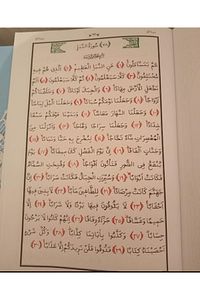 (٧٨) سُورَةُ النَّبَإِ
عَمَّ يَتَسَاءَلُونَ (١) عَنِ النَّبَإِ الْعَظِيمِ (٢) الَّذِي هُمْ فِيهِ
مُخْتَلِفُونَ (٣) كَلَّا سَيَعْلَمُونَ (٤) ثُمَّ كَلَّا سَيَعْلَمُونَ (٥) أَلَمْ
نَجْعَلِ الْأَرْضَ مِهَادًا (٦) وَالْجِبَالَ أَوْتَادًا (٧) وَخَلَقْنَاكُمْ
أَزْوَاجًا (٨) وَجَعَلْنَا نَوْمَكُمْ سُبَاتًا (٩) وَجَعَلْنَا اللَّيْلَ لِبَاسًا
(١٠) وَجَعَلْنَا النَّهَارَ مَعَاشًا (١١) وَبَنَيْنَا فَوْقَكُمْ سَبْعًا
شِدَادًا (١٢) وَجَعَلْنَا سِرَاجًا وَهَّاجًا (١٣) وَأَنْزَلْنَا مِنَ
الْمُعْصِرَاتِ مَاءً ثَجَّاجًا (١٤) لِنُخْرِجَ بِهِ حَبًّا وَنَبَاتًا (١٥)
وَجَنَّاتٍ أَلْفَافًا (١٦) إِنَّ يَوْمَ الْفَصْلِ كَانَ مِيقَاتًا (١٧) يَوْمَ
يُنْفَخُ فِي الصُّورِ فَتَأْتُونَ أَفْوَاجًا (١٨) وَفُتِحَتِ السَّمَاءُ
فَكَانَتْ أَبْوَابًا (١٩) وَسُيِّرَتِ الْجِبَالُ فَكَانَتْ سَرَابًا (٢٠) إِنَّ
جَهَنَّمَ كَانَتْ مِرْصَادًا (٢١) لِلطَّاغِينَ مَآبًا (٢٢) لَابِثِينَ فِيهَا
أَحْقَابًا (٢٣) لَا يَذُوقُونَ فِيهَا بَرْدًا وَلَا شَرَابًا (٢٤) إِلَّا
حَمِيمًا وَغَسَّاقًا (٢٥) جَزَاءً وِفَاقًا (٢٦) إِنَّهُمْ كَانُوا لَا يَرْجُونَ
حِسَابًا (٢٧) وَكَذَّبُوا بِآيَاتِنَا كِذَّابًا (٢٨) وَكُلَّ شَيْءٍ
أَحْصَيْنَاهُ كِتَابًا (٢٩) فَذُوقُوا فَلَنْ نَزِيدَكُمْ إِلَّا عَذَابًا (٣٠)